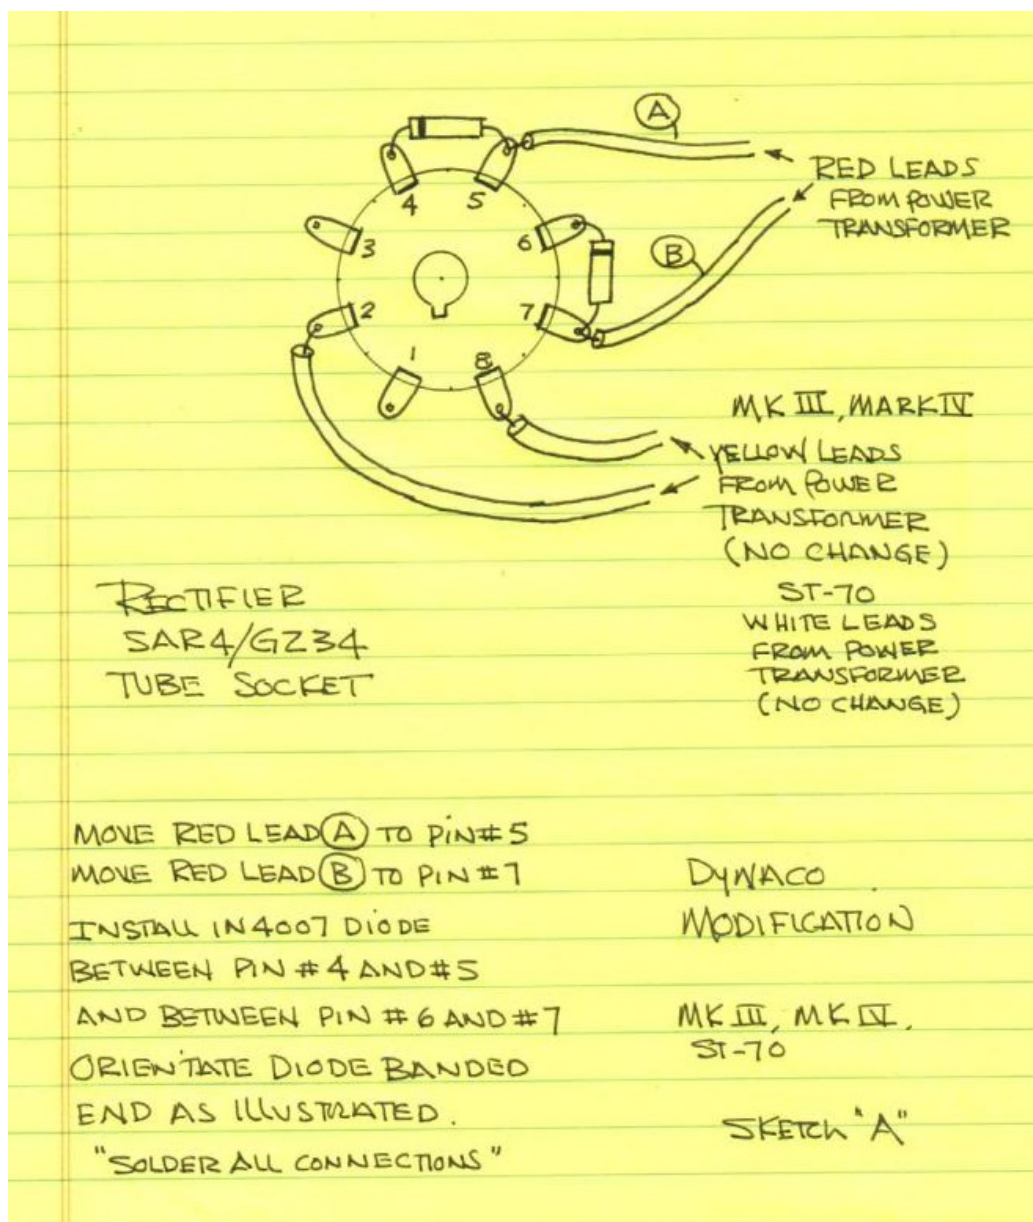 A
RED LEADS
FROM POWER
TRANSFORMER
4 5
3
6
B
2
7
1
8
MK III, MARK IV
YELLOW LEADS
FROM POWER
TRANSFORMER
(NO CHANGE)
ST-70
WHITE LEADS
FROM POWER
TRANSFORMER
(NO CHANGE)
RECTIFIER
5AR4/GZ34
TUBE SOCKET
MOVE RED LEAD A TO PIN #5
MOVE RED LEAD B TO PIN #7
INSTALL IN4007 DIODE
BETWEEN PIN #4 AND #5
AND BETWEEN PIN #6 AND #7
ORIENTATE DIODE BANDED
END AS ILLUSTRATED.
"SOLDER ALL CONNECTIONS"
DYNACO
MODIFICATION
MK III, MK IV,
ST-70
SKETCH "A"